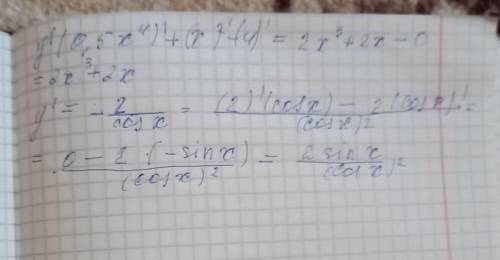 y'(0,5x⁴)'+(x²)'-(4)' = 2x³+2x-0
=2x³+2x
y' = -2/cosx = ((2)'(cosx) - 2(cosx)')/(cosx)² =
= (0-2(-sinx))/(cosx)² = 2sinx/(cosx)²